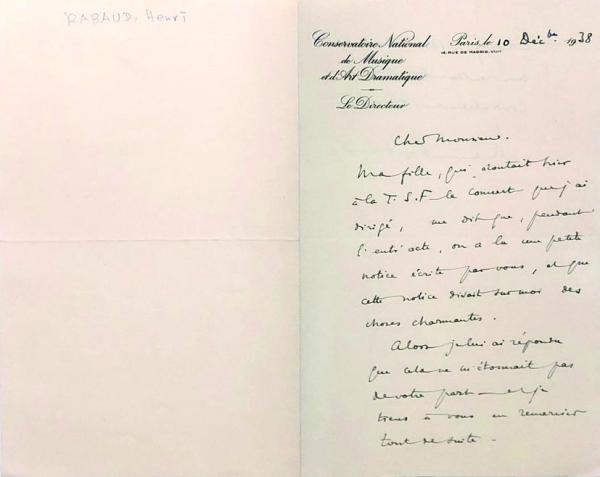 RABAUD. Henri
Conservatoire National
de Musique
et d'Art Dramatique
Le Directeur
Paris, le 10 Déc.bre 1938
14, RUE DE MADRID, VIIIe
Cher Monsieur.
Ma fille, qui écoutait hier
à la T.S.F. le concert que j'ai
dirigé, me dit que, pendant
l'entr'acte, on a lu une petite
notice écrite par vous, et que
cette notice disait sur moi des
choses charmantes.
Alors je lui ai répondu
que cela ne m'étonnait pas
de votre part — et je
tiens à vous en remercier
tout de suite —